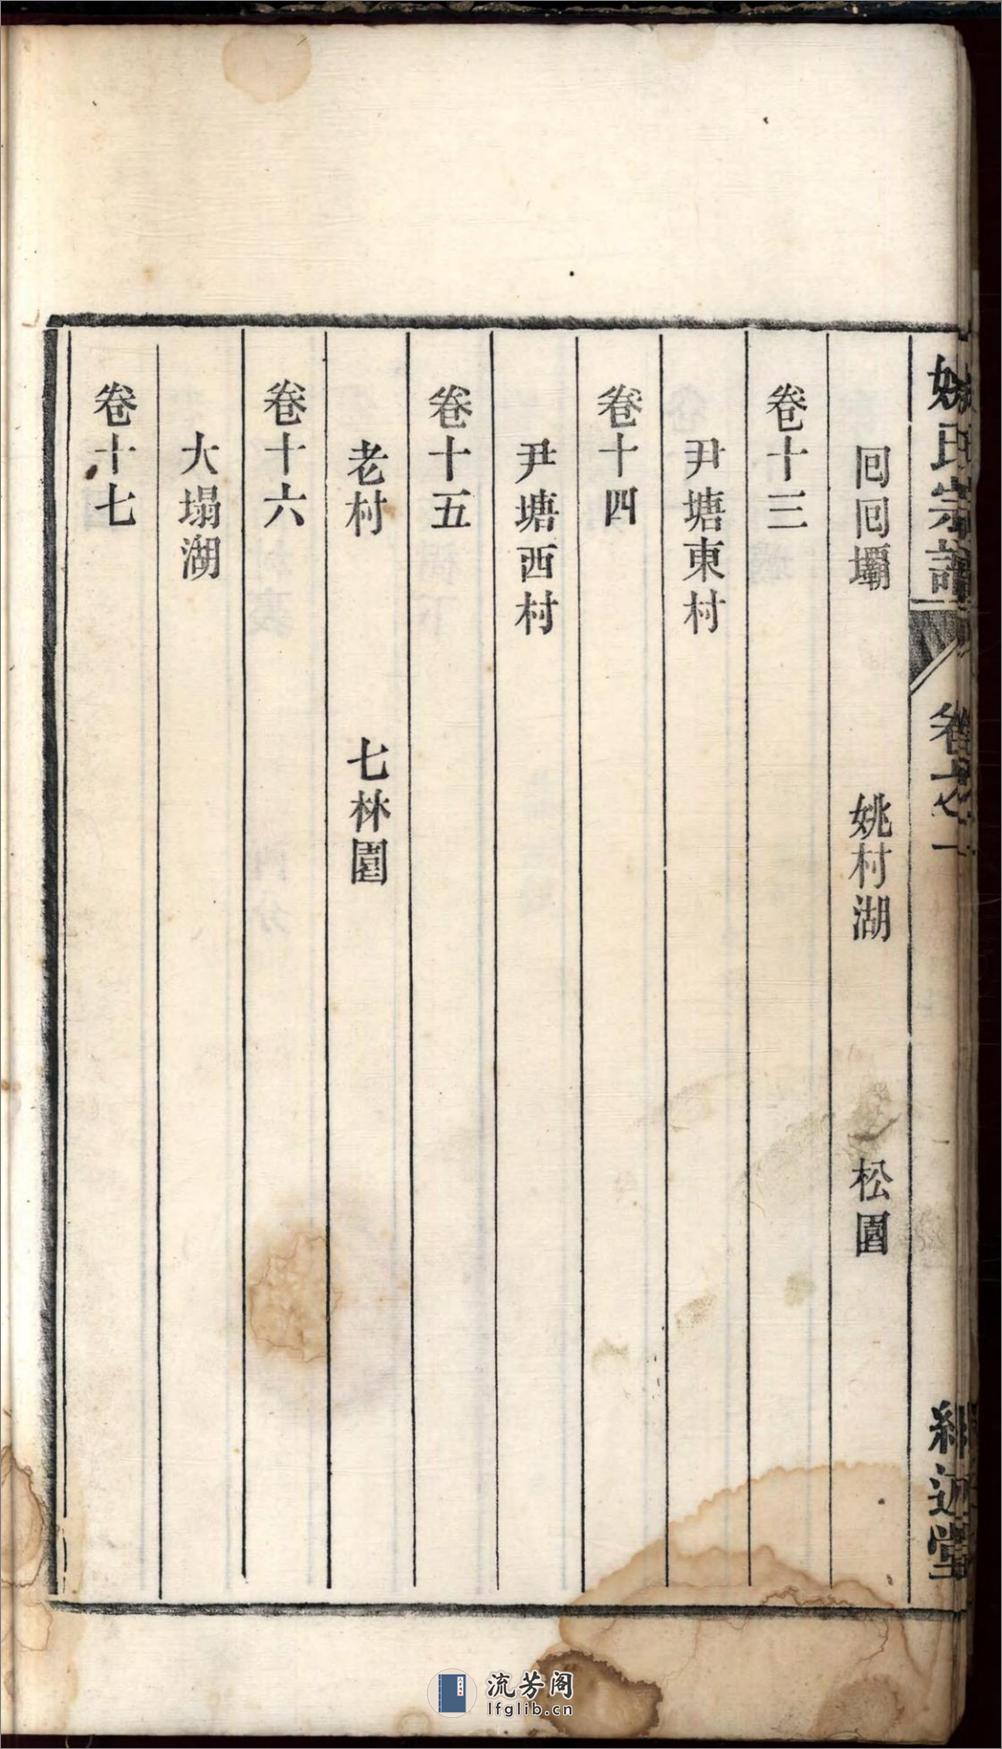 姚氏宗譜 卷之一
回回壩 姚村湖 松園
卷十三
尹塘東村
卷十四
尹塘西村
卷十五
老村 七林園
卷十六
大塌湖
卷十七
流芳阁
lfglib.cn